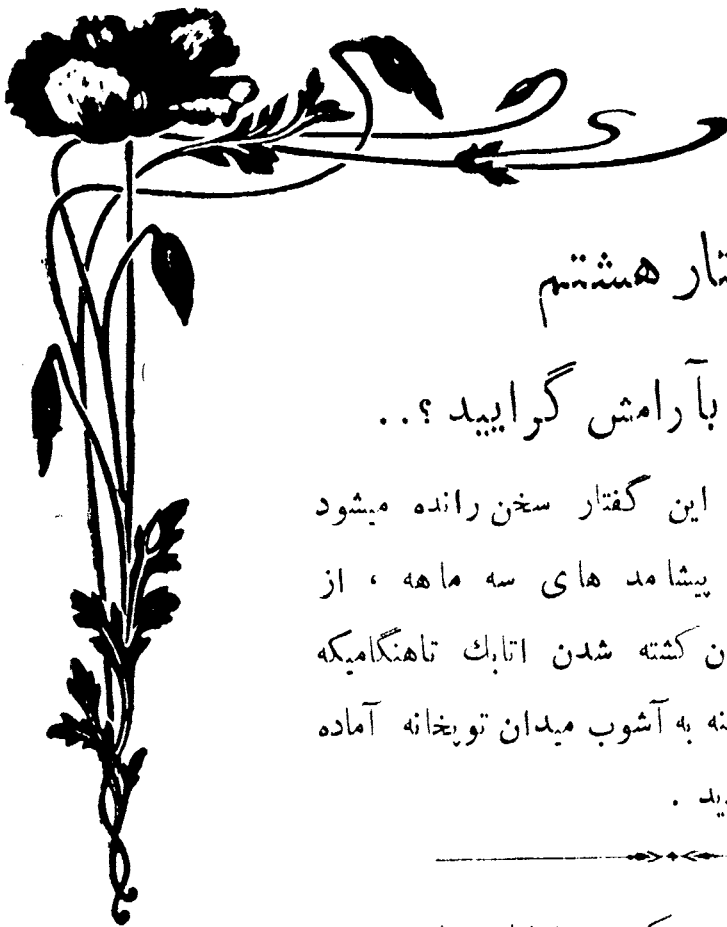 تار هشتم
بآرامش گرایید ؟..
این گفتار سخن رانده میشود
پیشامد های سه ماهه ، از
کشته شدن اتابك تاهنگامیکه
به آشوب میدان توپخانه آماده